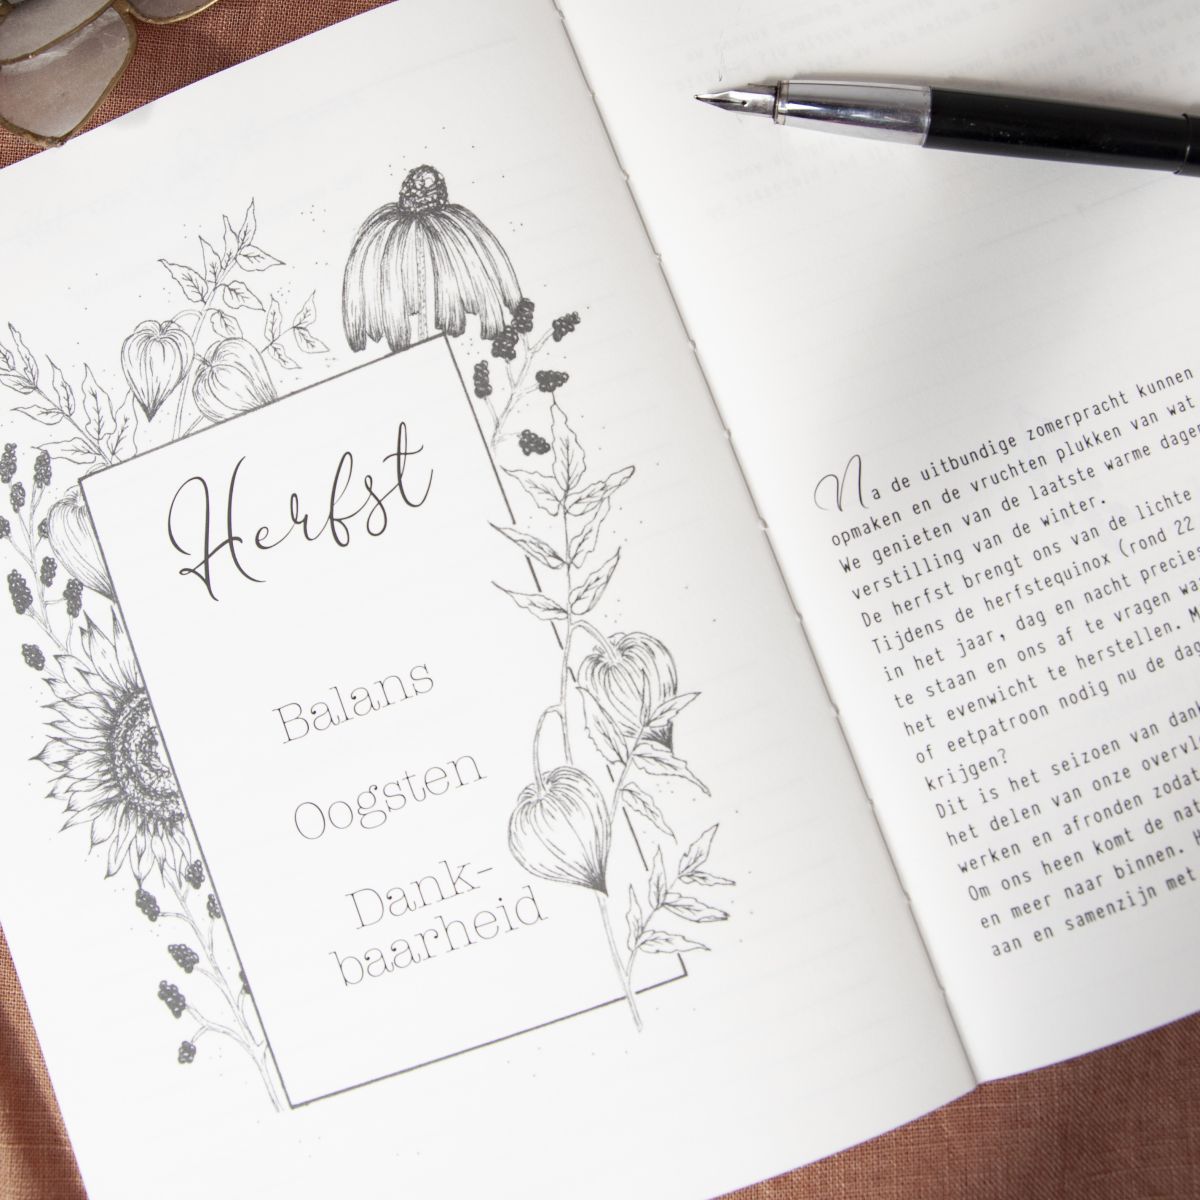 Herfst
Balans
Oogsten
Dank-
baarheid
Na de uitbundige zomerpracht kunnen
opmaken en de vruchten plukken van wat
We genieten van de laatste warme dagen
verstilling van de winter.
De herfst brengt ons van de lichte
Tijdens de herfstequinox (rond 22
in het jaar, dag en nacht precies
te staan en ons af te vragen wa
het evenwicht te herstellen. M
of eetpatroon nodig nu de dag
krijgen?
Dit is het seizoen van dank
het delen van onze overvl
werken en afronden zodat
Om ons heen komt de nat
en meer naar binnen. H
aan en samenzijn met